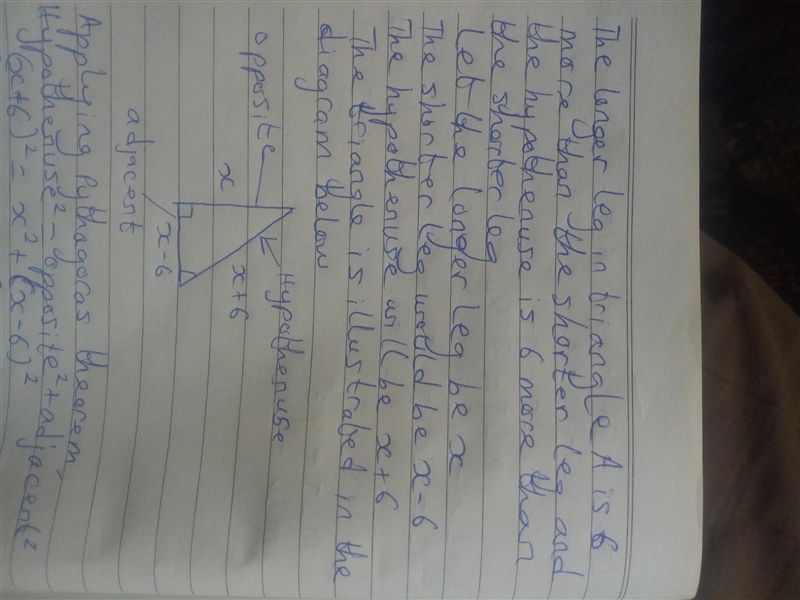 The longer leg in triangle A is 6
more than the shorter leg and
the hypothenuse is 6 more than
the shorter leg
Let the longer leg be x
The shorter leg would be x-6
The hypothenuse will be x+6
The triangle is illustrated in the
diagram below
Hypothenuse
opposite
x+6
x
x-6
adjacent
Applying Pythagoras theorem,
Hypothenuse² = opposite² + adjacent²
(x+6)² = x² + (x-6)²